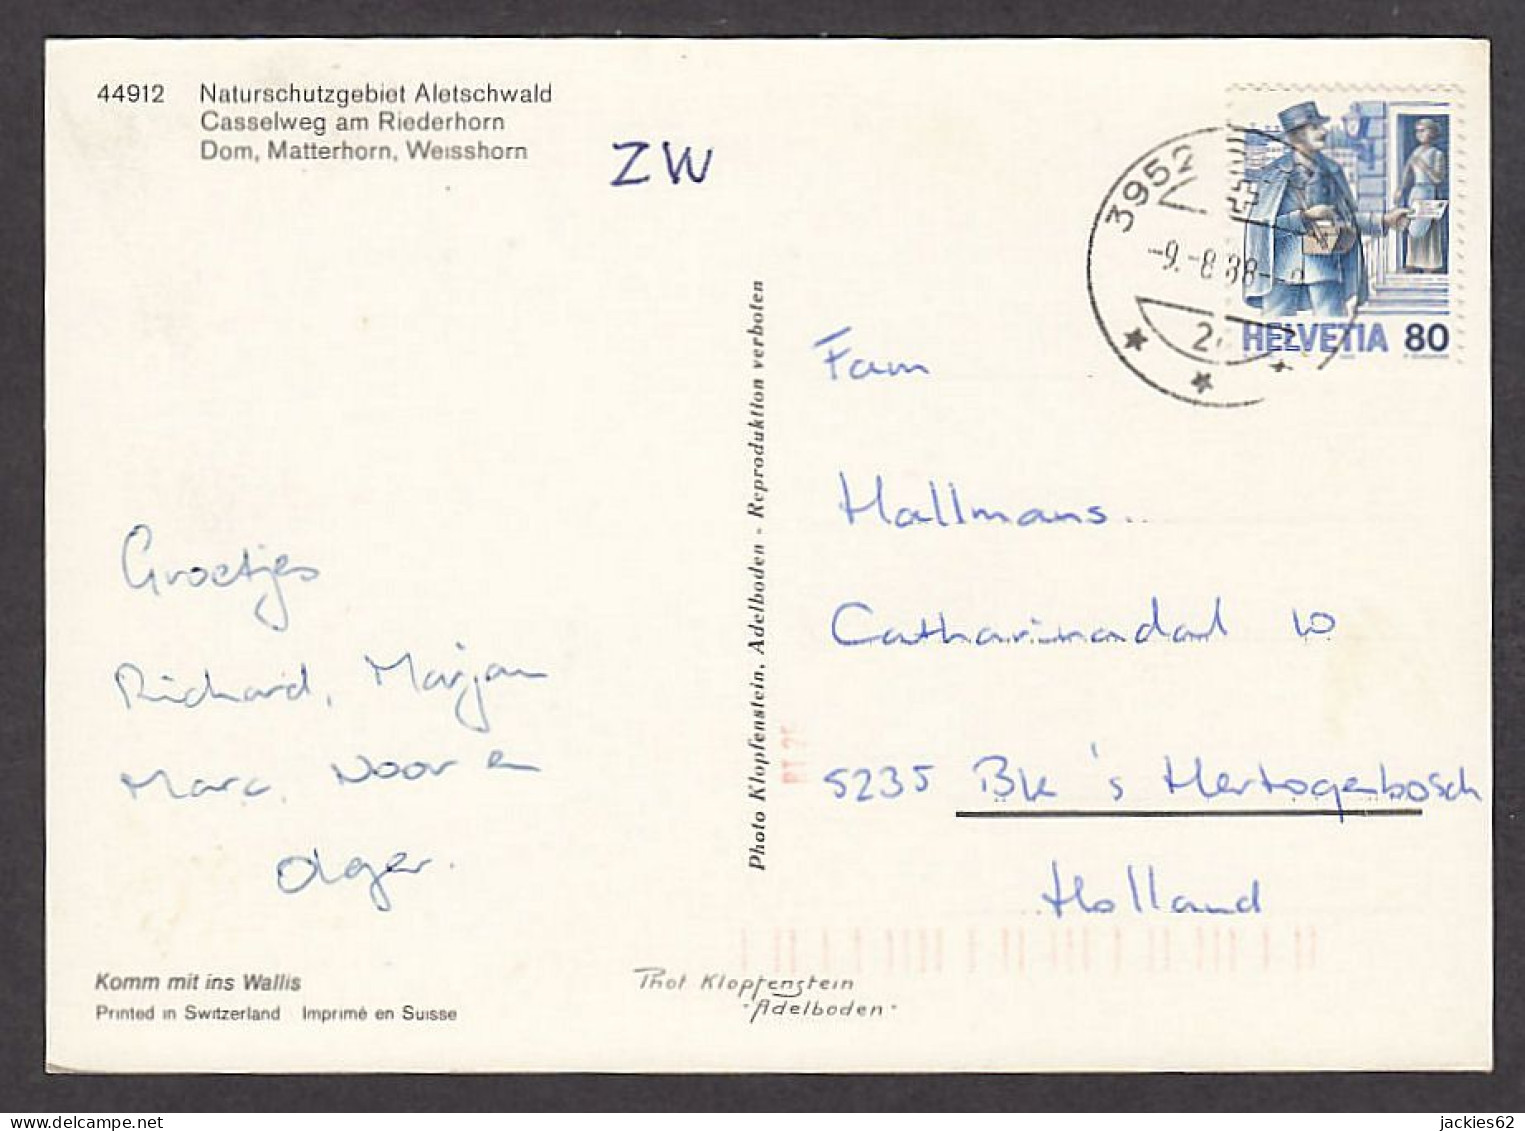 44912 Naturschutzgebiet Aletschwald
Casselweg am Riederhorn
Dom, Matterhorn, Weisshorn
ZW
3952
-9.-8.88--
HELVETIA 80
Groetjes
Richard, Marjan
Marc, Noor en
Olger.
Komm mit ins Wallis
Printed in Switzerland Imprimé en Suisse
Photo Klopfenstein, Adelboden - Reproduktion verboten
Phot Klopfenstein
-Adelboden-
Fam
Hallmans..
Catharinadal 10
5235 BK 's Hertogenbosch
Holland
jackies62